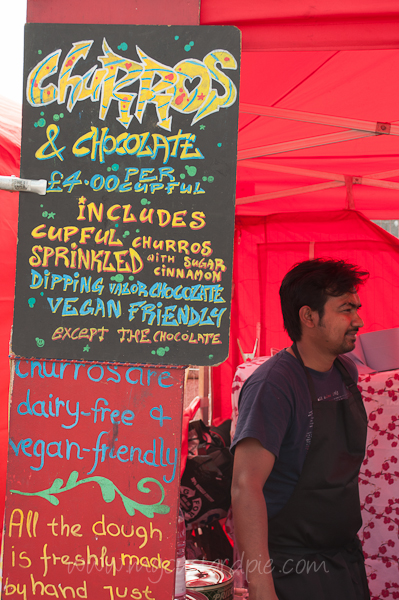 Churros
& CHOCOLATE
£4.00 PER CUPFUL
INCLUDES
CUPFUL CHURROS
SPRINKLED WITH SUGAR CINNAMON
DIPPING CHOCOLATE
VEGAN FRIENDLY
EXCEPT THE CHOCOLATE
Churros are
dairy-free &
vegan-friendly
All the dough
is freshly made
by hand Just